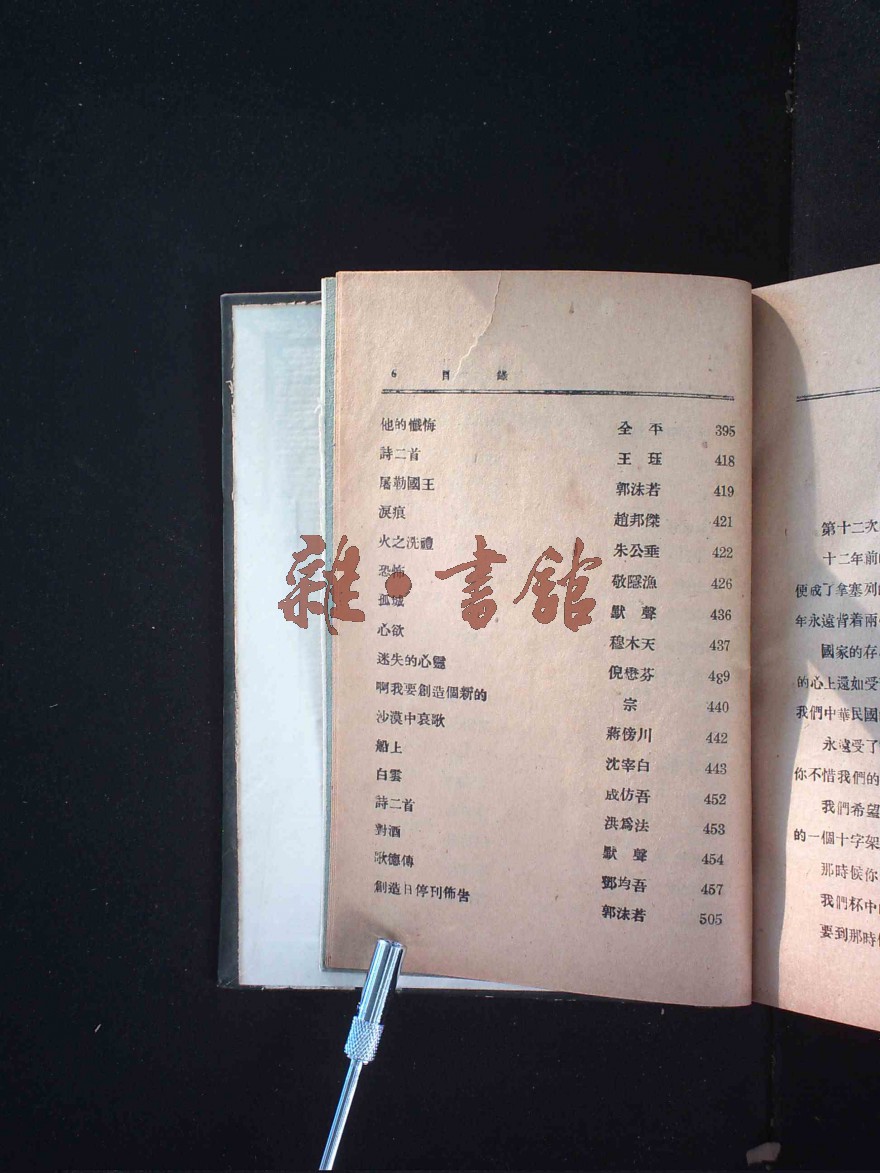 6 目 錄
他的懺悔 全 平 395
詩二首 王 珏 418
屠勒國王 郭沫若 419
淚痕 趙邦傑 421
火之洗禮 朱公垂 422
恐怖 敬隱漁 426
孤城 默 聲 436
心欲 穆木天 437
迷失的心靈 倪懋芬 439
啊我要創造個新的 宗 440
沙漠中哀歌 蔣傍川 442
船上 沈宰白 443
白雲 成仿吾 452
詩二首 洪爲法 453
對酒 默 聲 454
歌德傳 鄧均吾 457
創造日停刊佈告 郭沫若 505
雜·書館
第十二次
十二年前
便成了拿塞列
年永遠背着兩
國家的存
的心上還如受
我們中華民國
永遠受了
你不惜我們的
我們希望
的一個十字架
那時候你
我們杯中
要到那時